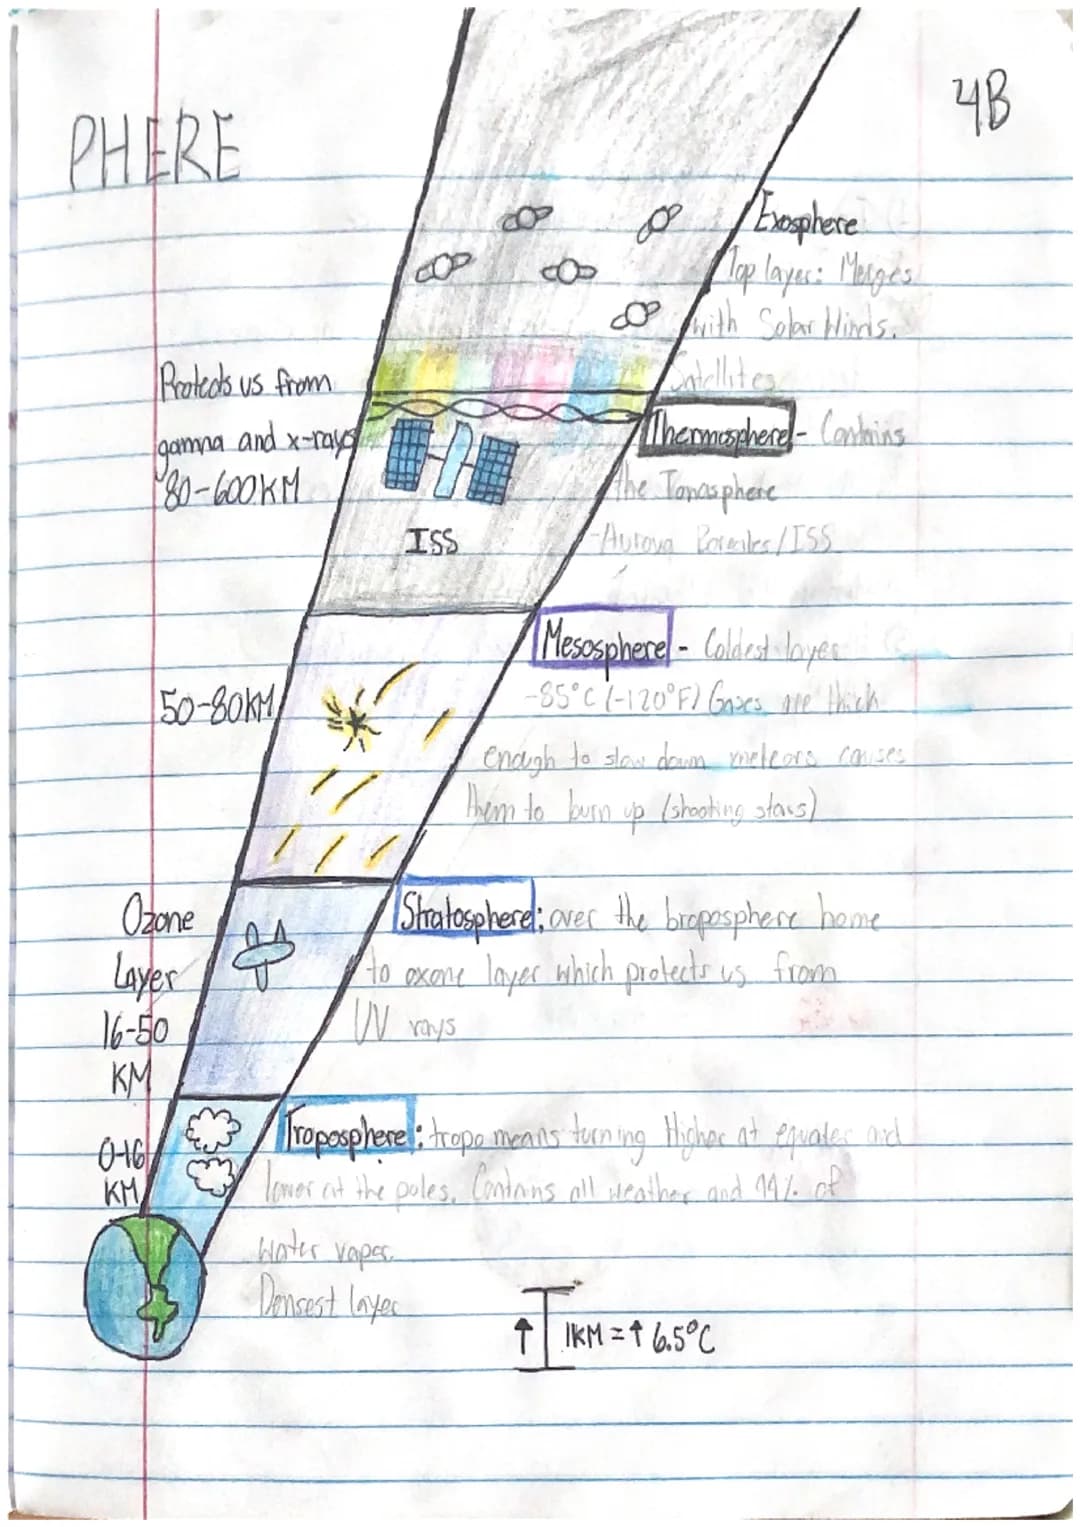 4B
PHERE
Exosphere
Top layer: Merges
with Solar Winds.
Satellites
Protects us from
gamna and x-rays
80-600KM
Thermosphere - Contains
the Ionasphere
-Aurova Boreales/ISS
ISS
Mesosphere - Coldest layer
50-80KM
-85°C (-120°F) Gases are thick
enough to slow down meteors causes
them to burn up (shooting stars)
Ozone
Layer
16-50
KM
Stratosphere: over the broposphere home
to oxone layer which protects us from
UV rays
0-16
KM
Troposphere: tropo means turning Higher at equater and
lower at the poles. Contans all weather and 99% of
Water vaper.
Densest layer
↑ 1KM = ↑ 6.5°C